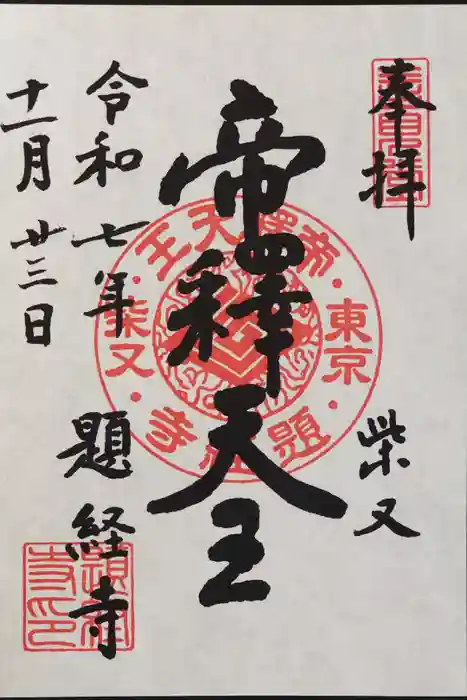 奉拝
柴又
帝釋天王
令和七年
十一月廿三日
題経寺
帝釋天王
東京
柴又
題経寺